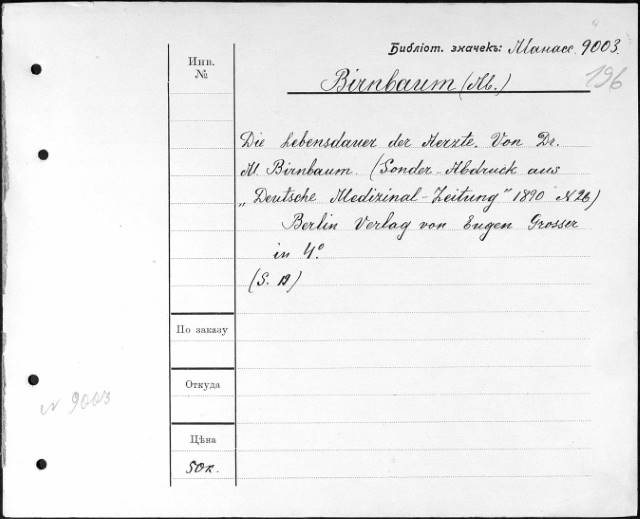 Библіот. значекъ: Манасс. 9003.
196
Инв.
№
Birnbaum (M.)
Die Lebensdauer der Aerzte. Von Dr.
M. Birnbaum. (Sonder-Abdruck aus
„Deutsche Medizinal-Zeitung" 1890 N 26)
Berlin Verlag von Eugen Grosser
in 4°
(S.
По заказу
Откуда
№ 9003
Цѣна
50к.